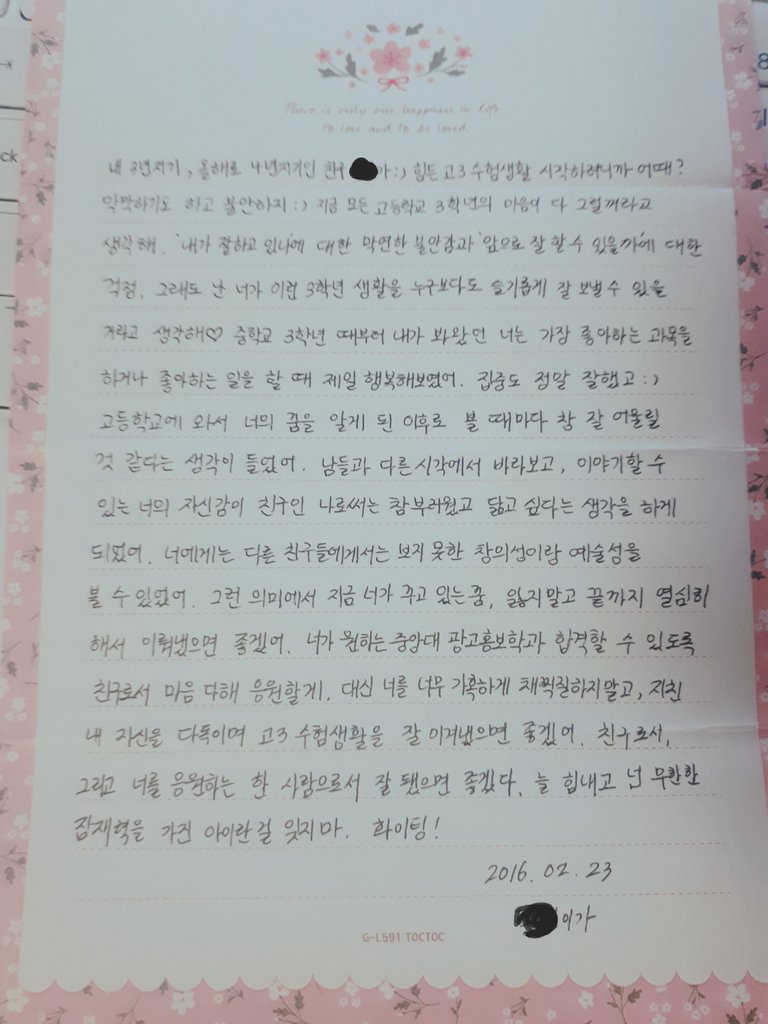 There is only one happiness in life
to love and to be loved.
내 3년지기, 올해로 4년지기인 친구 가:) 힘든 고3 수험생활 시작하려니까 어때?
막막하기도 하고 불안하지:) 지금 모든 고등학교 3학년의 마음이 다 그럴꺼라고
생각해. '내가 잘하고 있나'에 대한 막연한 불안감과 '앞으로 잘 할 수 있을까'에 대한
걱정. 그래도 난 너가 이런 3학년 생활을 누구보다도 슬기롭게 잘 보낼 수 있을
거라고 생각해♡ 중학교 3학년 때부터 내가 봐왔던 너는 가장 좋아하는 과목을
하거나 좋아하는 일을 할 때 제일 행복해보였어. 집중도 정말 잘했고:)
고등학교에 와서 너의 꿈을 알게 된 이후로 볼 때마다 참 잘 어울릴
것 같다는 생각이 들었어. 남들과 다른 시각에서 바라보고, 이야기할 수
있는 너의 자신감이 친구인 나로써는 참 부러웠고 닮고 싶다는 생각을 하게
되었어. 너에게는 다른 친구들에게서는 보지 못한 창의성이랑 예술성을
볼 수 있었어. 그런 의미에서 지금 너가 꾸고 있는 꿈, 잃지말고 끝까지 열심히
해서 이뤄냈으면 좋겠어. 너가 원하는 중앙대 광고홍보학과 합격할 수 있도록
친구로서 마음 다해 응원할게. 대신 너를 너무 가혹하게 채찍질하지말고, 지친
내 자신을 다독이며 고3 수험생활을 잘 이겨냈으면 좋겠어. 친구로서,
그리고 너를 응원하는 한 사람으로서 잘 됐으면 좋겠다. 늘 힘내고 넌 무한한
잠재력을 가진 아이란걸 잊지마. 화이팅!
2016. 02. 23
이가
G-L591 TOCTOC
ck
8